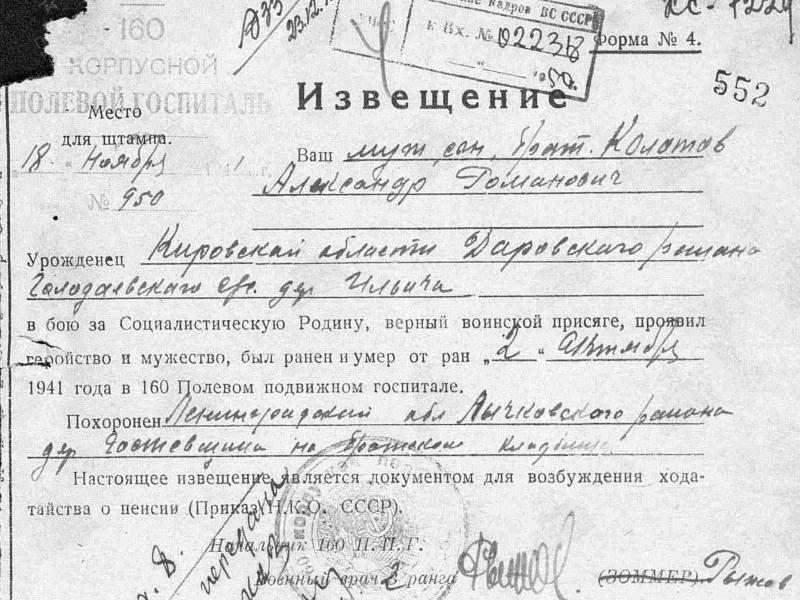 23.12.
160
КОРПУСНОЙ
ПОЛЕВОЙ ГОСПИТАЛЬ
Кадров ВС СССР
к Вх. № 02238
Форма № 4.
552
Извещение
Место
для штампа.
18 " Ноября г.
№ 950
Ваш муж, сын, брат. Колотов
Александр Романович
Урожденец Кировской области Даровского района
дер Ильича
в бою за Социалистическую Родину, верный воинской присяге, проявил
геройство и мужество, был ранен и умер от ран „2 " октября
1941 года в 160 Полевом подвижном госпитале.
Похоронен Ленинградской обл Лычковского района
дер Гостевщина на братском кладбище
Настоящее извещение является документом для возбуждения хода-
тайства о пенсии (Приказ Н.К.О. СССР).
передана
Начальник 160 П.П.Г.
Военный врач 2 ранга (ЗОММЕР). Рыжов